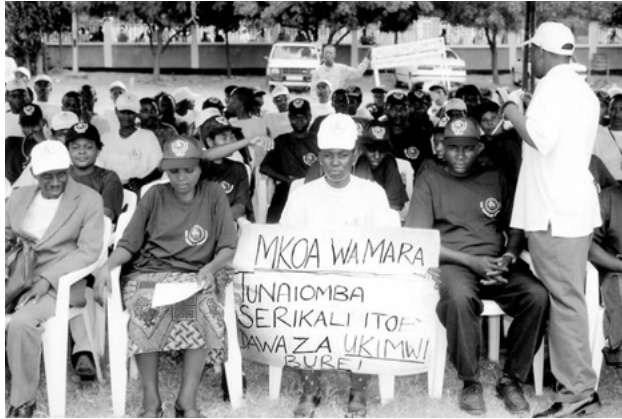 MKOA WA MARA
TUNAIOMBA
SERIKALI ITOE
DAWA ZA UKIMWI
BURE!